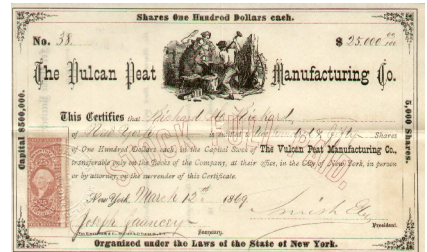 Shares One Hundred Dollars each.
No. 38. $ 25,000
The Vulcan Peat Manufacturing Co.
Capital $500,000.
5,000 Shares.
This Certifies that Richard
of New York is entitled to Two Hundred & Fifty Shares
of One Hundred Dollars each, in the Capital Stock of The Vulcan Peat Manufacturing Co.,
transferable only on the Books of the Company, at their office, in the City of New York, in person
or by attorney, on the surrender of this Certificate.
New York March 12th 1869
Joseph
Secretary. President.
Organized under the Laws of the State of New York.